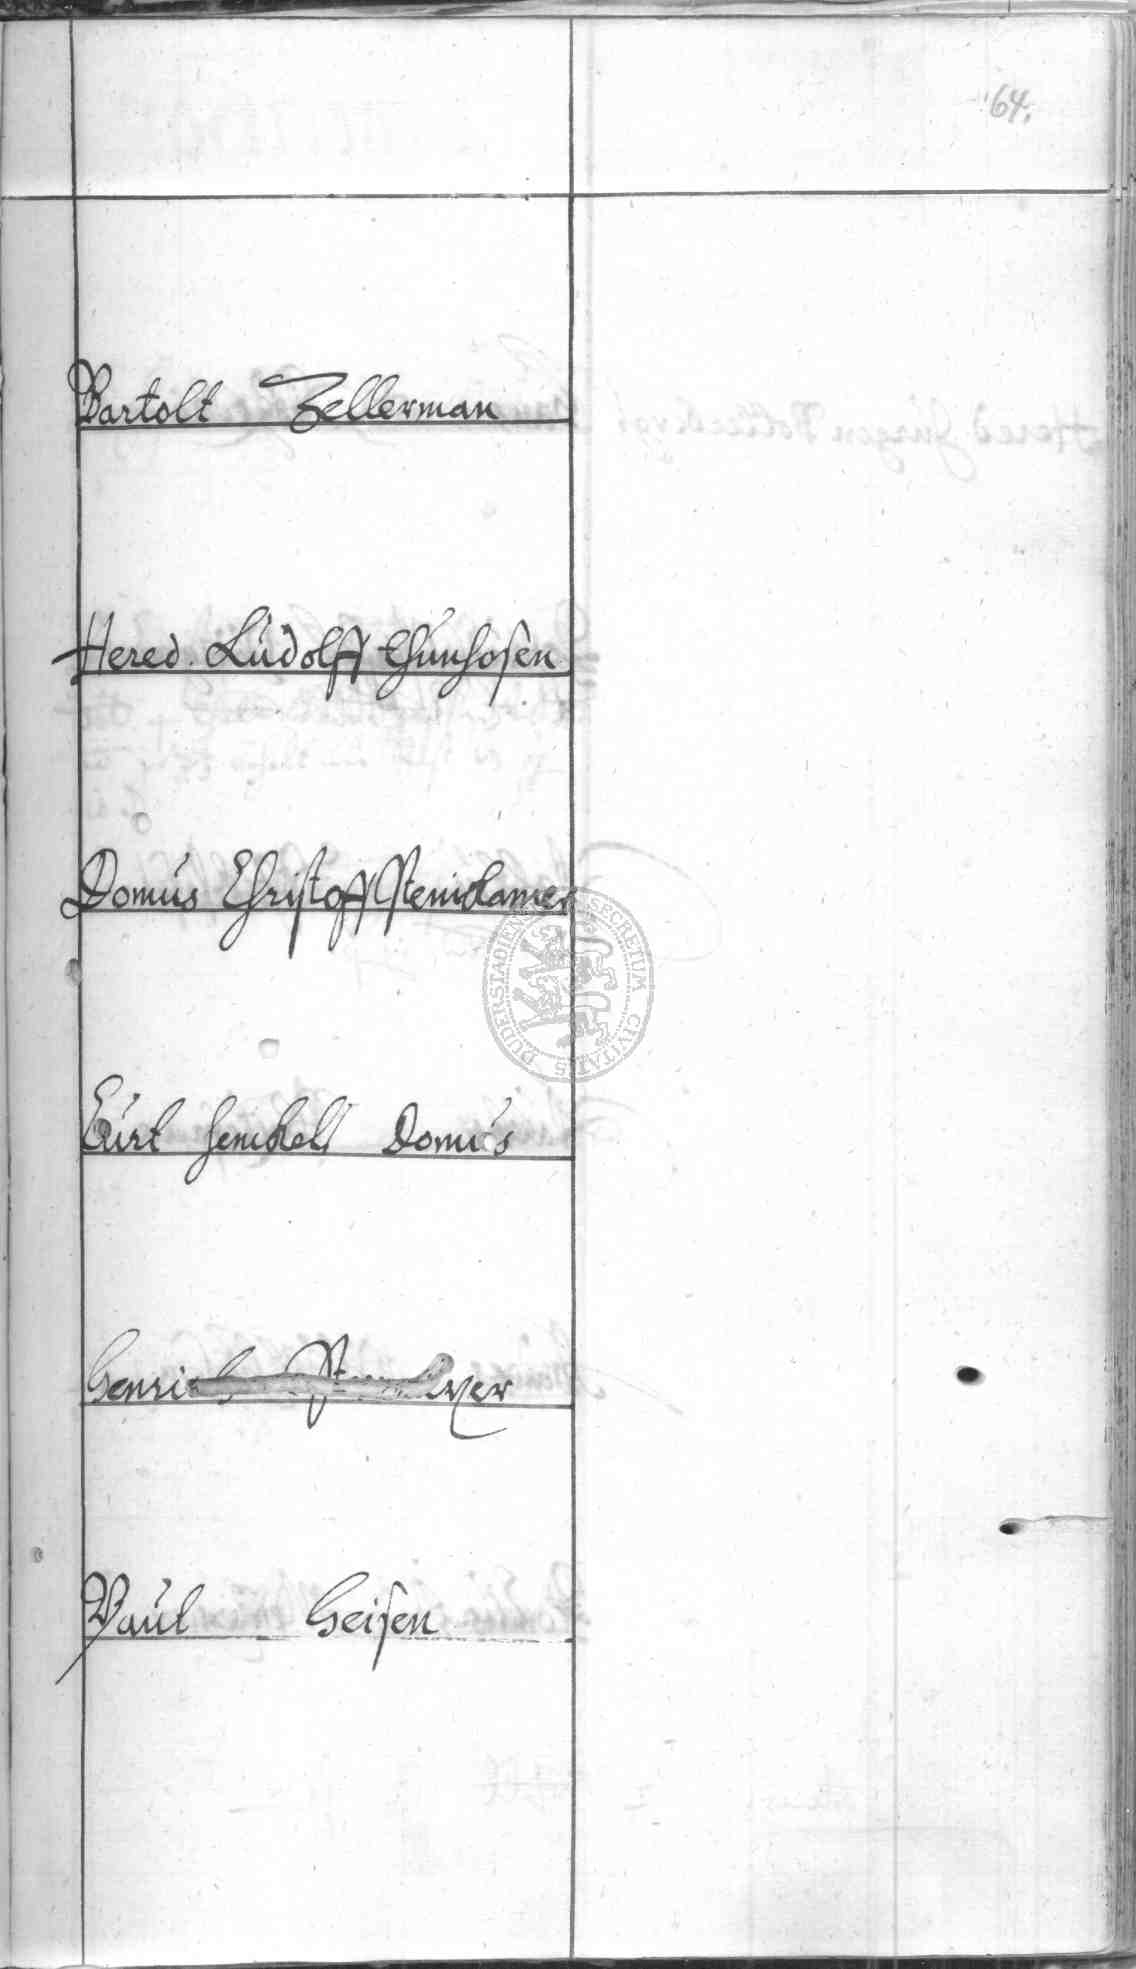 64.
Bartolt Zellerman
Hered. Ludolff Thunhosen
Domus Christoff Steinkamer
Curt Henckell Domus
Henri
Paul Geisen
SECRETUM CIVITATIS DUDERSTADIENSIS